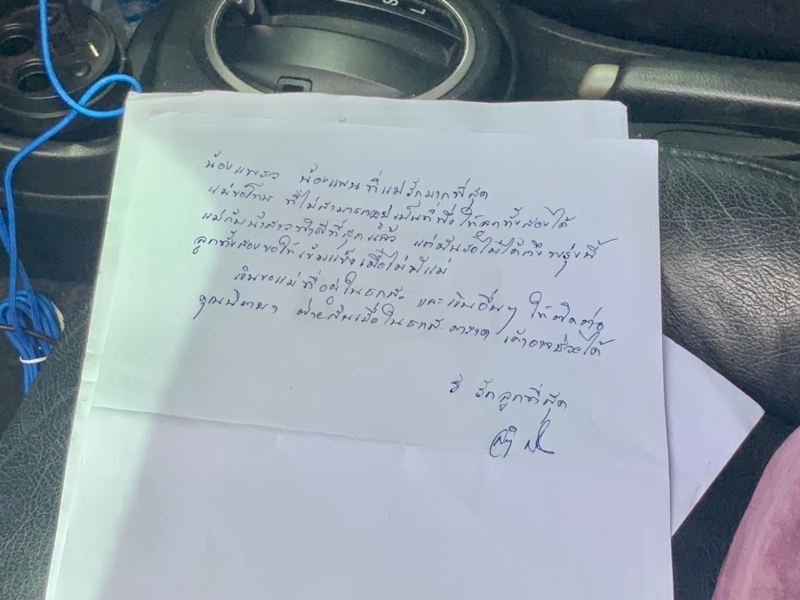 น้องแพรว น้องแพน ที่แม่รักมากที่สุด
แม่ขอโทษ ที่ไม่สามารถอยู่เป็นที่พึ่ง ให้ลูกทั้งสองได้
แม่กับน้าสาวทำดีที่สุดแล้ว แต่มันรอไม่ได้ถึงพรุ่งนี้
ลูกทั้งสองขอให้เข้มแข็งเมื่อไม่มีแม่
เงินของแม่ที่อยู่ใน ธกส. และเงินอื่นๆ ให้ติดต่อ
คุณ ฝ่ายสินเชื่อใน ธกส. เค้าอาจช่วยได้
รักลูกที่สุด